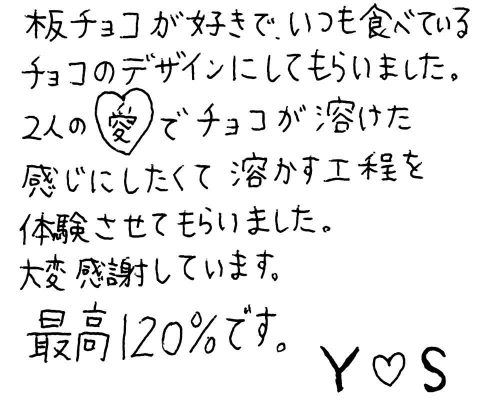 板チョコが好きで、いつも食べている
チョコのデザインにしてもらいました。
2人の愛でチョコが溶けた
感じにしたくて溶かす工程を
体験させてもらいました。
大変感謝しています。
最高120%です。
Y♡S